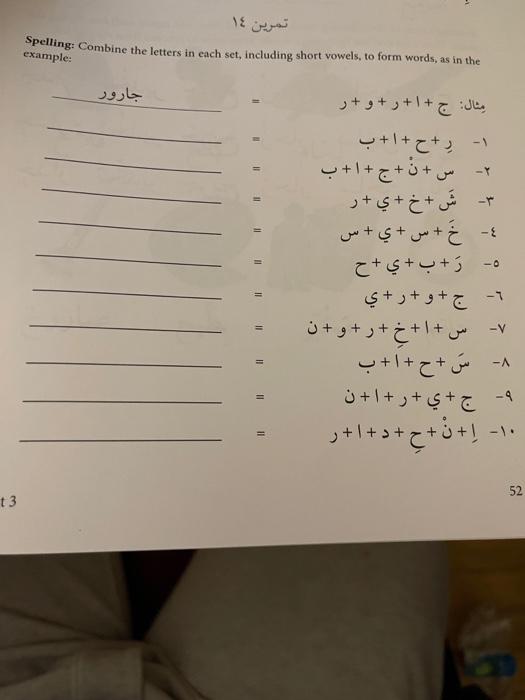 تمرين ١٤
Spelling: Combine the letters in each set, including short vowels, to form words, as in the
example:
مثال: ج + ا + ر + و + ر = جارور
١- رِ + ح + ا + ب =
٢- س + نْ + ج + ا + ب =
٣- شَ + خ + ي + ر =
٤- خَ + س + ي + س =
٥- رَ + ب + ي + ح =
٦- ج + و + ر + ي =
٧- س + ا + خِ + ر + و + ن =
٨- سَ + ح + ا + ب =
٩- ج + ي + ر + ا + ن =
١٠- اِ + نْ + حِ + د + ا + ر =
52
t 3